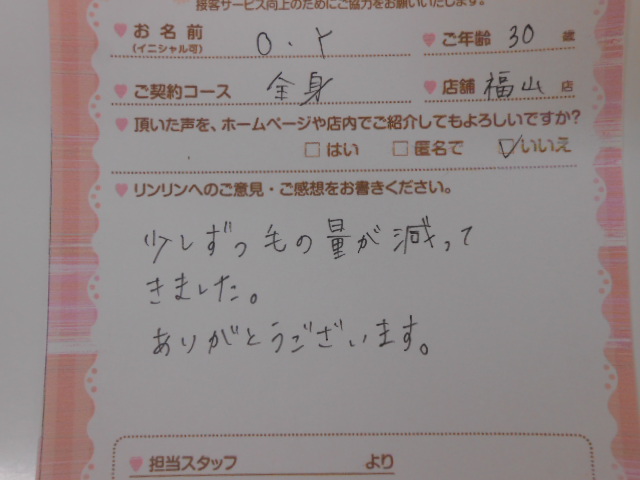 接客サービス向上のためにご協力をお願いいたします。
お名前 O.Y ご年齢 30 歳
(イニシャル可)
ご契約コース 全身 店舗 福山 店
頂いた声を、ホームページや店内でご紹介してもよろしいですか?
□はい □匿名で ☑いいえ
リンリンへのご意見・ご感想をお書きください。
少しずつ毛の量が減って
きました。
ありがとうございます。
担当スタッフ より